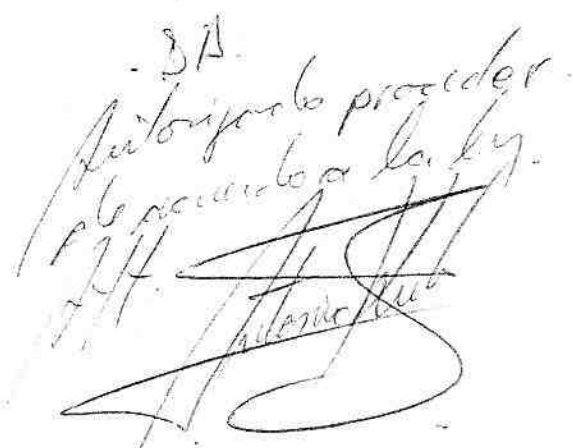 . D A.
Autorizado proceder
de acuerdo a la ley.
Antonio